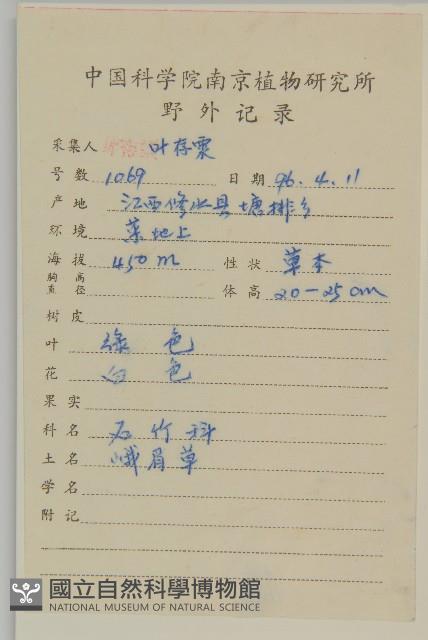 中国科学院南京植物研究所
野外记录
采集人 叶存粟
号数 1069 日期 96.4.11
产地 江西修水县塘排乡
环境 菜地上
海拔 450m 性状 草本
胸高直径 体高 20-25cm
树皮
叶 绿色
花 白色
果实
科名 石竹科
土名 峨眉草
学名
附记
國立自然科學博物館
NATIONAL MUSEUM OF NATURAL SCIENCE